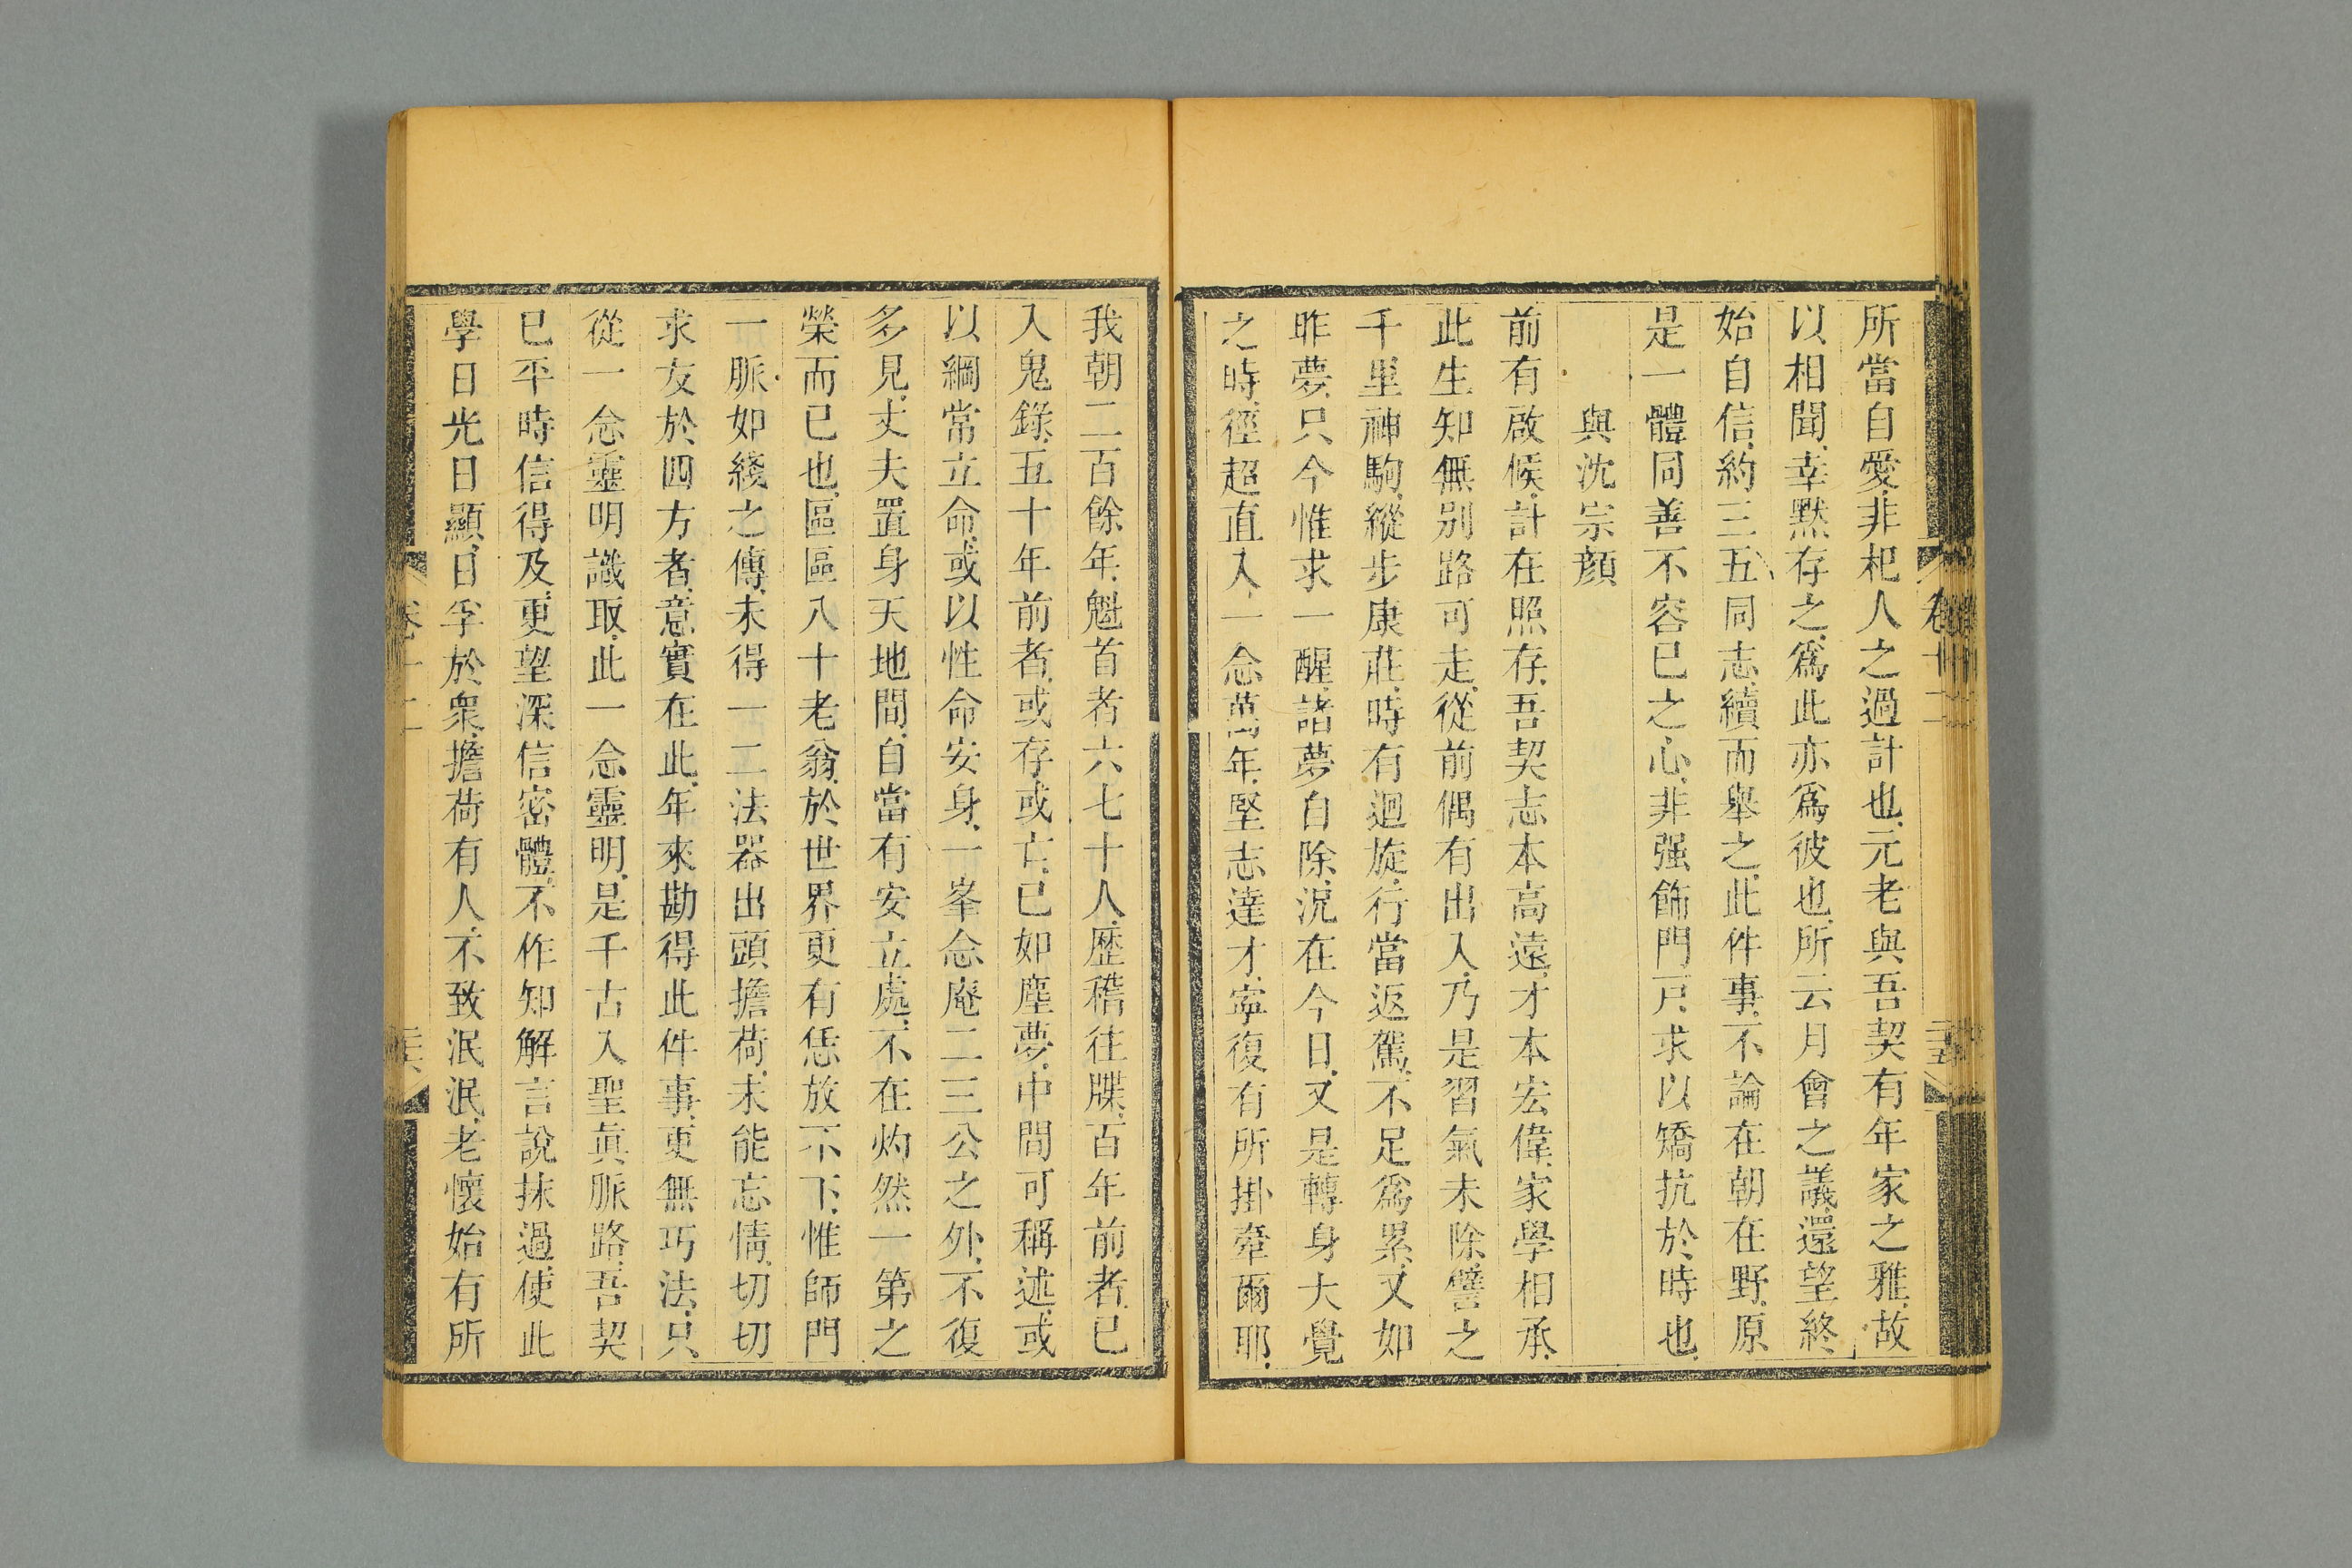 所當自愛、非𣏌人之過計也、元老與吾契有年家之雅、故
以相聞、幸默存之、爲此亦爲彼也、所云月會之議、還望終
始自信、約三五同志、續而舉之、此件事、不論在朝在野、原
是一體同善不容已之心、非强飾門戸、求以矯抗於時也、
與沈宗顔
前有啟候、計在照存、吾契志本高遠、才本宏偉、家學相承、
此生知無別路可走、從前偶有出入、乃是習氣未除、譬之
千里神駒、縱步康莊、時有迴旋、行當返駕、不足爲累、又如
昨夢、只今惟求一醒、諸夢自除、況在今日、又是轉身大覺
之時、徑超直入、一念萬年、堅志達才、寧復有所掛牽爾耶、
卷十二
我朝二百餘年、魁首者六七十人、歷稽往牒、百年前者、已
入鬼錄、五十年前者、或存或亡、已如塵夢、中間可稱述、或
以綱常立命、或以性命安身、一峯念庵二三公之外、不復
多見、丈夫置身天地間、自當有安立處、不在灼然一第之
榮而已也、區區八十老翁、於世界更有恁放不下、惟師門
一脈如綫之傳、未得一二法器出頭擔荷、未能忘情、切切
求友於四方者、意實在此、年來勘得此件事、更無巧法、只
從一念靈明識取、此一念靈明、是千古入聖眞脈路、吾契
已平時信得及、更望深信密體、不作知解言說抹過、使此
學日光日顯、日孚於衆、擔荷有人、不致泯泯、老懷始有所
卷十二